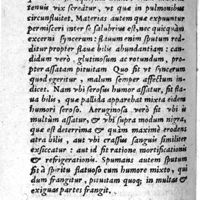 tenuis vix screatur, vt quæ in pulmonibus
circunfluitet. Materias autem quæ expuuntur
permisceri inter se salubrius est, nec quicquam
excerni syncerum: statim enim sputum red-
ditur propter flauæ bilis abundantiam: can-
didum verò, glutinosum ac rotundum, pro-
pter assatam pituitam Quo fit vt syncerum
quod egeritur, malum semper affectum indi-
cet. Nam vbi serosus humor assatur, fit fla-
ua bilis, quæ pallida apparebat mixta eidem
humori seroso. Aeruginosa verò fit vbi is
multùm assatur, & vbi supra modum nigra,
quæ est deterrima & quàm maximè erodens
atra bilis, aut vbi crassus sanguis similiter
exiccatur: aut id fit ratione mortificationis
& refrigerationis. Spumans autem sputum
fit à spiritu flatuoso cum humore mixto, qui
dum frangitur, pituitam quoq; in multas &
exiguas partes frangit.